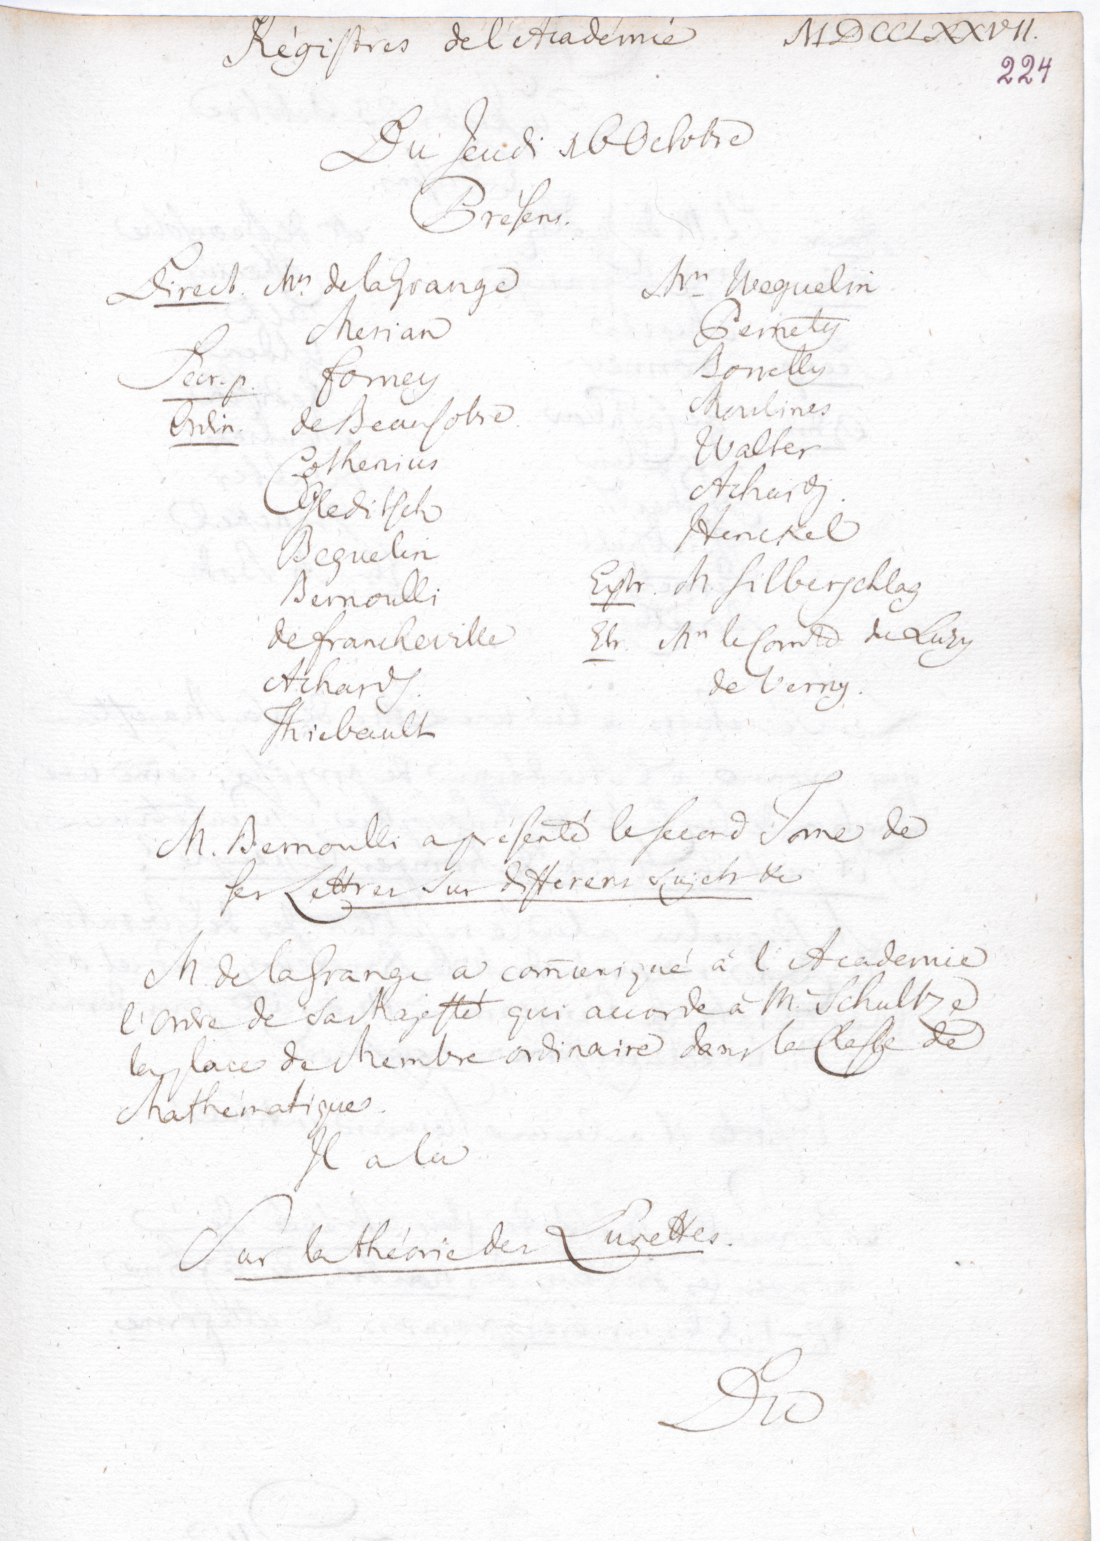 Régistres de l'Académie MDCCLXXVII.
224
Du Jeudi 16 Octobre
Présens.
Direct. Mrs. de la Grange
Merian
Secr. p. Formey
Ordin. de Beausobre
Cothenius
Gleditsch
Beguelin
Bernoulli
de Francheville
Achard
Thiebault
Mrs. Weguelin
Pernety
Borrelly
Moulines
Walter
Achard j.
Henckel
Extr. M. Silberschlag
Etr. Mrs le Comte de Luzy
de Verny.
M. Bernoulli a présenté le second Tome de
ses Lettres sur differens sujets &c
M. de la Grange a com̄uniqué à l'Academie
l'ordre de Sa Majesté qui accorde à Mr Schultze
la place de Membre ordinaire dans la Classe de
Mathématiques.
Il a lu
Sur la théorie des Lunettes.
Du